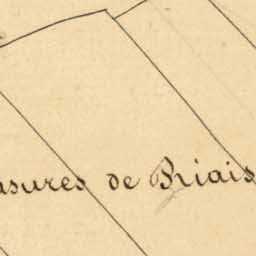 asures de Riais